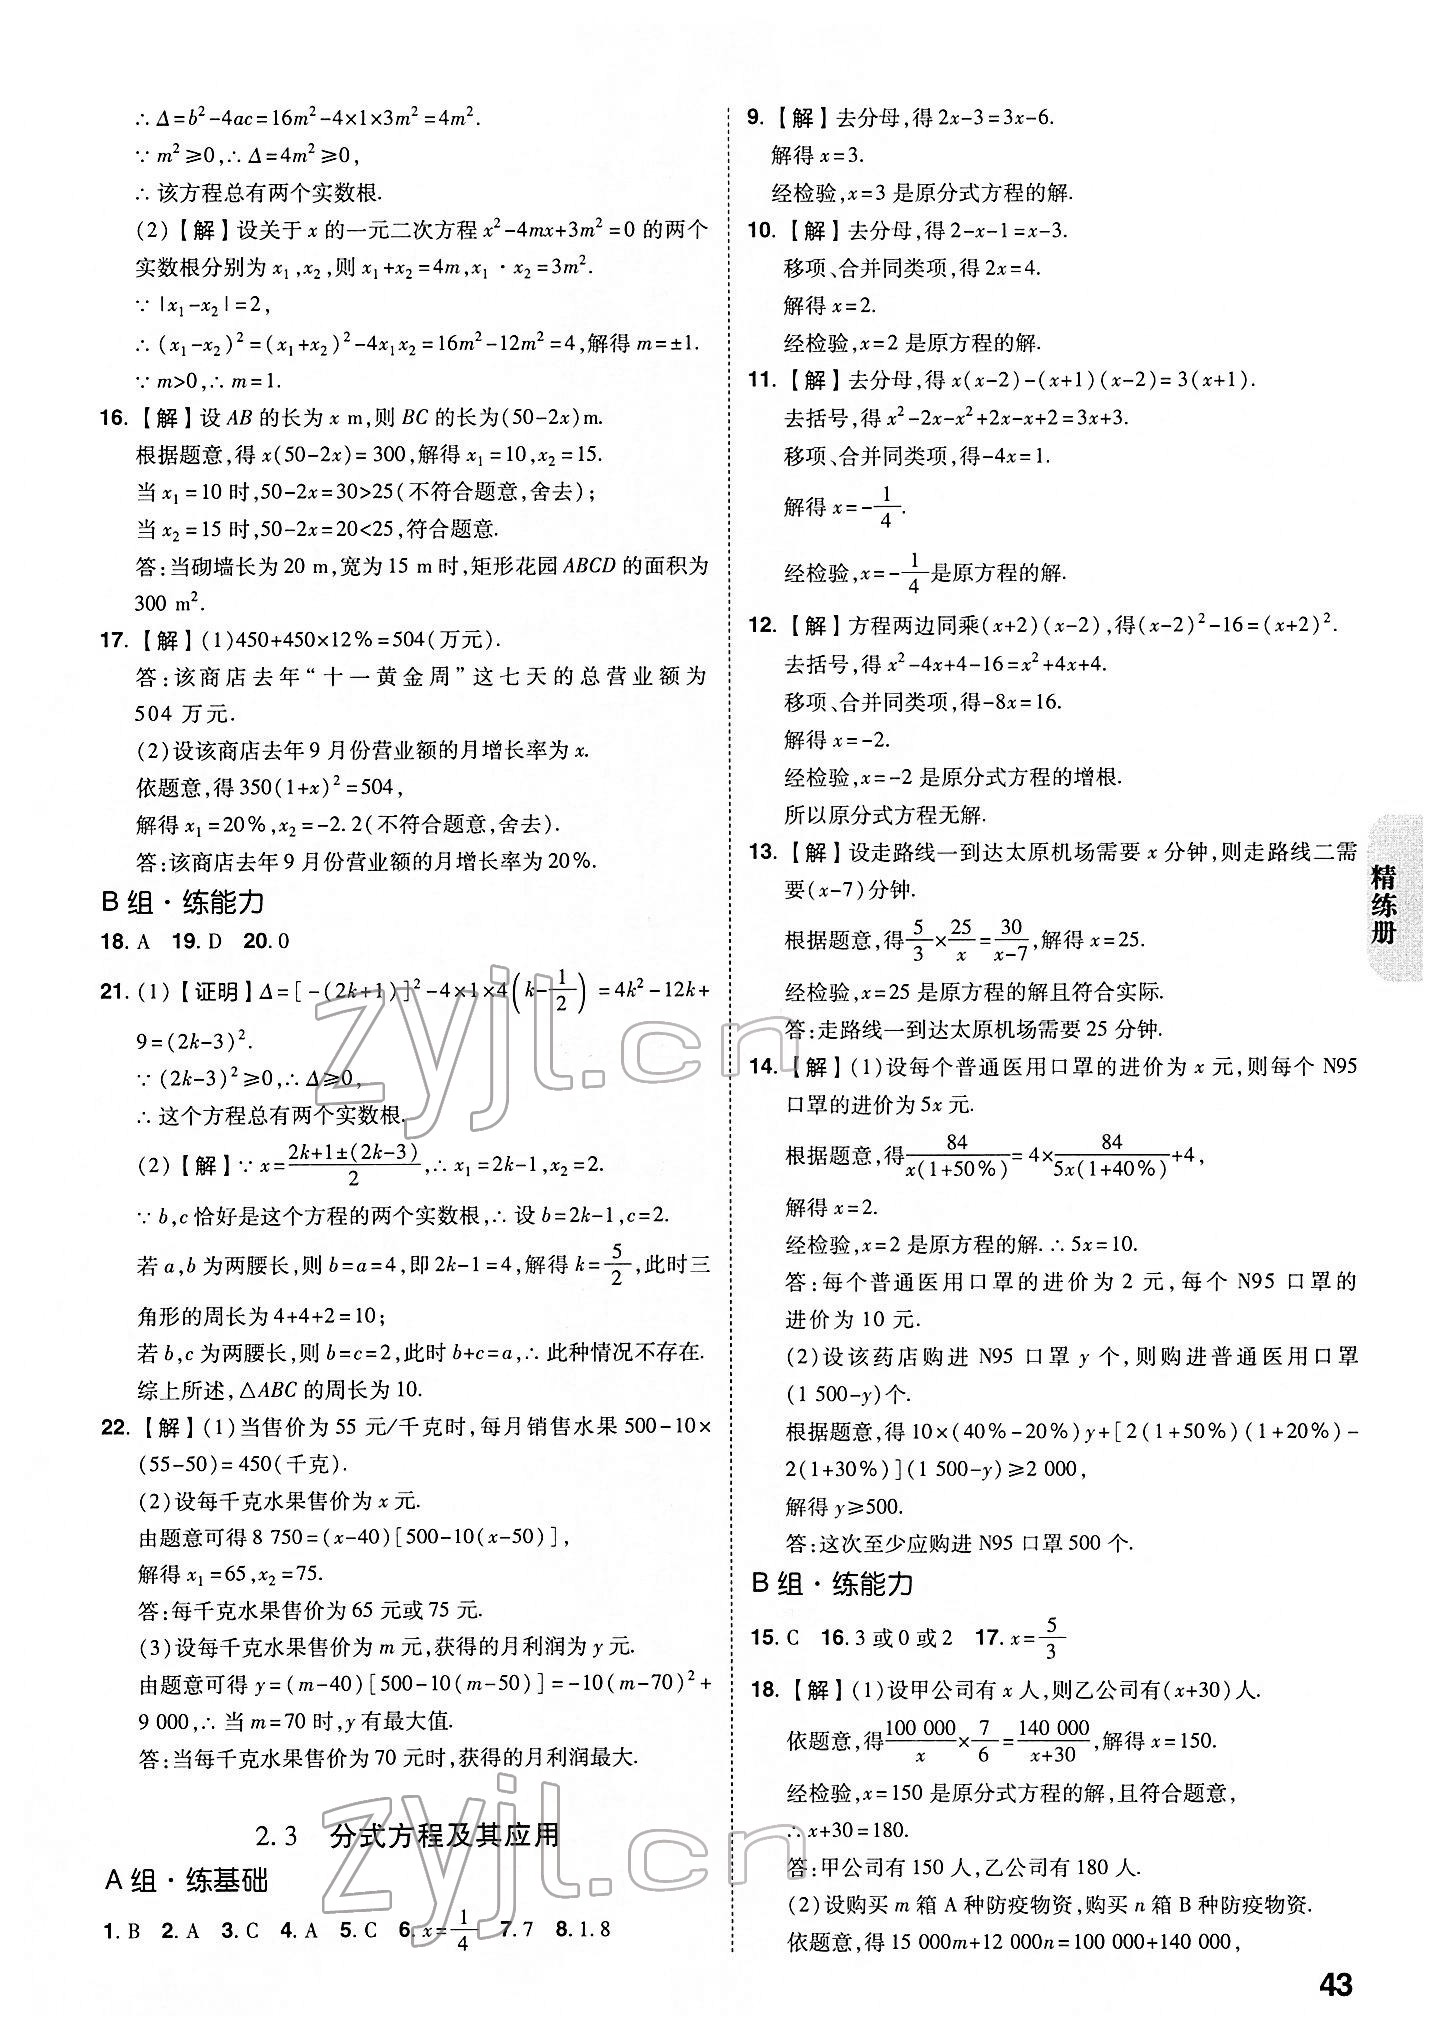 ∴ Δ=b²-4ac=16m²-4×1×3m²=4m².
∵ m²≥0,∴ Δ=4m²≥0,
∴ 该方程总有两个实数根.
(2)【解】设关于 x 的一元二次方程 x²-4mx+3m²=0 的两个
实数根分别为 x₁,x₂,则 x₁+x₂=4m,x₁·x₂=3m².
∵ |x₁-x₂|=2,
∴ (x₁-x₂)²=(x₁+x₂)²-4x₁x₂=16m²-12m²=4,解得 m=±1.
∵ m>0,∴ m=1.
16.【解】设 AB 的长为 x m,则 BC 的长为(50-2x)m.
根据题意,得 x(50-2x)=300,解得 x₁=10,x₂=15.
当 x₁=10 时,50-2x=30>25(不符合题意,舍去);
当 x₂=15 时,50-2x=20<25,符合题意.
答:当砌墙长为 20 m,宽为 15 m 时,矩形花园 ABCD 的面积为
300 m².
17.【解】(1)450+450×12%=504(万元).
答:该商店去年“十一黄金周”这七天的总营业额为
504 万元.
(2)设该商店去年 9 月份营业额的月增长率为 x.
依题意,得 350(1+x)²=504,
解得 x₁=20%,x₂=-2.2(不符合题意,舍去).
答:该商店去年 9 月份营业额的月增长率为 20%.
B 组·练能力
18. A 19. D 20. 0
21. (1)【证明】Δ=[-(2k+1)]²-4×1×4(k-1/2)=4k²-12k+
9=(2k-3)².
∵ (2k-3)²≥0,∴ Δ≥0,
∴ 这个方程总有两个实数根.
(2)【解】∵ x=(2k+1±(2k-3))/2,∴ x₁=2k-1,x₂=2.
∵ b,c 恰好是这个方程的两个实数根,∴ 设 b=2k-1,c=2.
若 a,b 为两腰长,则 b=a=4,即 2k-1=4,解得 k=5/2,此时三
角形的周长为 4+4+2=10;
若 b,c 为两腰长,则 b=c=2,此时 b+c=a,∴ 此种情况不存在.
综上所述,△ABC 的周长为 10.
22.【解】(1)当售价为 55 元/千克时,每月销售水果 500-10×
(55-50)=450(千克).
(2)设每千克水果售价为 x 元.
由题意可得 8 750=(x-40)[500-10(x-50)],
解得 x₁=65,x₂=75.
答:每千克水果售价为 65 元或 75 元.
(3)设每千克水果售价为 m 元,获得的月利润为 y 元.
由题意可得 y=(m-40)[500-10(m-50)]=-10(m-70)²+
9 000,∴ 当 m=70 时,y 有最大值.
答:当每千克水果售价为 70 元时,获得的月利润最大.
2.3 分式方程及其应用
A 组·练基础
1. B 2. A 3. C 4. A 5. C 6. x=1/4 7. 7 8. 1.8
9.【解】去分母,得 2x-3=3x-6.
解得 x=3.
经检验,x=3 是原分式方程的解.
10.【解】去分母,得 2-x-1=x-3.
移项、合并同类项,得 2x=4.
解得 x=2.
经检验,x=2 是原方程的解.
11.【解】去分母,得 x(x-2)-(x+1)(x-2)=3(x+1).
去括号,得 x²-2x-x²+2x-x+2=3x+3.
移项、合并同类项,得-4x=1.
解得 x=-1/4.
经检验,x=-1/4是原方程的解.
12.【解】方程两边同乘(x+2)(x-2),得(x-2)²-16=(x+2)².
去括号,得 x²-4x+4-16=x²+4x+4.
移项、合并同类项,得-8x=16.
解得 x=-2.
经检验,x=-2 是原分式方程的增根.
所以原分式方程无解.
13.【解】设走路线一到达太原机场需要 x 分钟,则走路线二需
要(x-7)分钟.
根据题意,得5/3×25/x=30/(x-7),解得 x=25.
经检验,x=25 是原方程的解且符合实际.
答:走路线一到达太原机场需要 25 分钟.
14.【解】(1)设每个普通医用口罩的进价为 x 元,则每个 N95
口罩的进价为 5x 元.
根据题意,得84/(x(1+50%))=4×84/(5x(1+40%))+4,
解得 x=2.
经检验,x=2 是原方程的解.∴ 5x=10.
答:每个普通医用口罩的进价为 2 元,每个 N95 口罩的
进价为 10 元.
(2)设该药店购进 N95 口罩 y 个,则购进普通医用口罩
(1 500-y)个.
根据题意,得 10×(40%-20%)y+[2(1+50%)(1+20%)-
2(1+30%)](1 500-y)≥2 000,
解得 y≥500.
答:这次至少应购进 N95 口罩 500 个.
B 组·练能力
15. C 16. 3 或 0 或 2 17. x=5/3
18.【解】(1)设甲公司有 x 人,则乙公司有(x+30)人.
依题意,得100 000/x×7/6=140 000/(x+30),解得 x=150.
经检验,x=150 是原分式方程的解,且符合题意,
∴ x+30=180.
答:甲公司有 150 人,乙公司有 180 人.
(2)设购买 m 箱 A 种防疫物资,购买 n 箱 B 种防疫物资.
依题意,得 15 000m+12 000n=100 000+140 000,
精练册
43
zyjl.cn
zyjl.cn